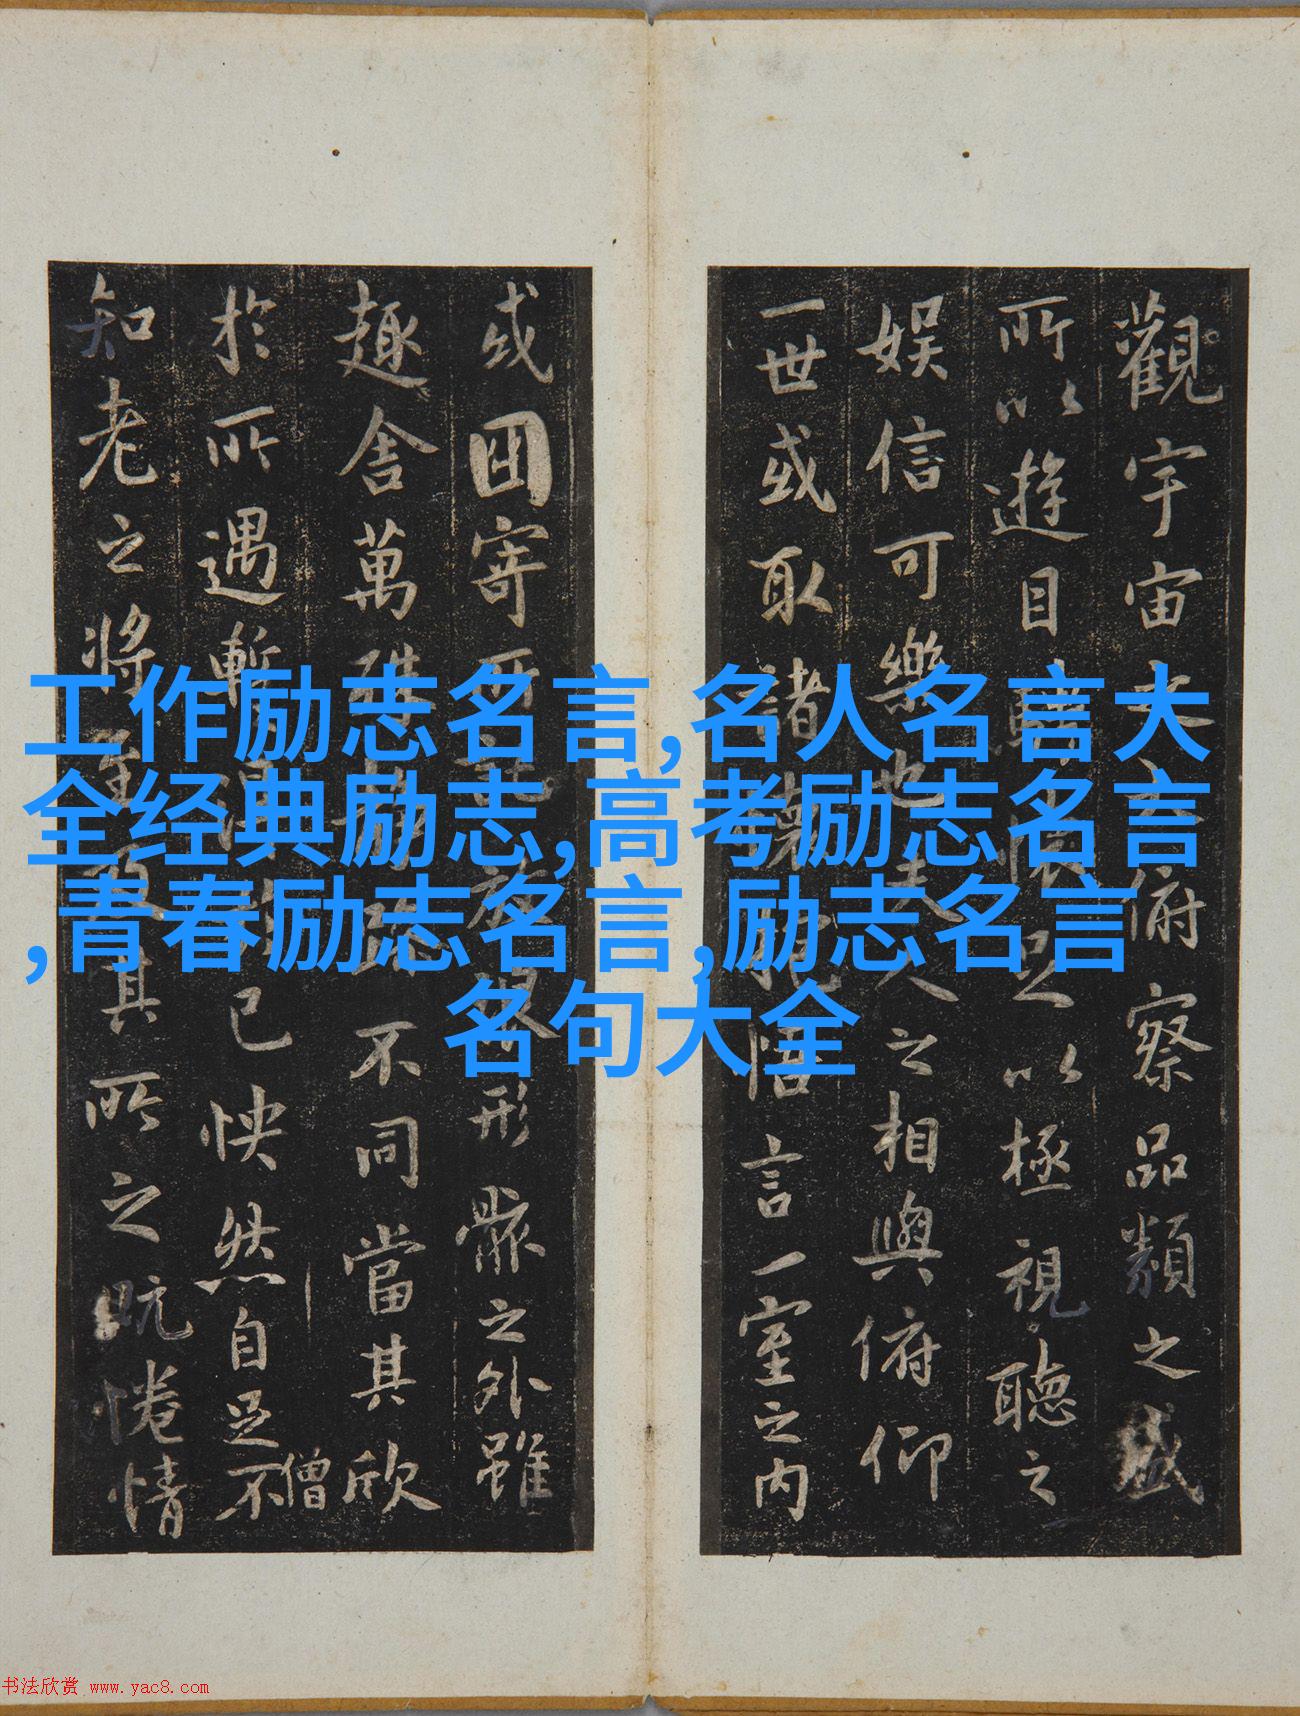 觀宇宙之大俯察品類之盛
所以遊目騁懷足以極視聽之
娛信可樂也夫人之相與俯仰
一世或取諸懷抱悟言一室之內
或因寄所託放浪形骸之外雖
趣舍萬殊靜躁不同當其欣
於所遇暫得於己快然自足不
僧
知老之將至及其所之既惓情
工作励志名言,名人名言大
全经典励志,高考励志名言
,青春励志名言,励志名言
名句大全
书法欣赏 www.yac8.com